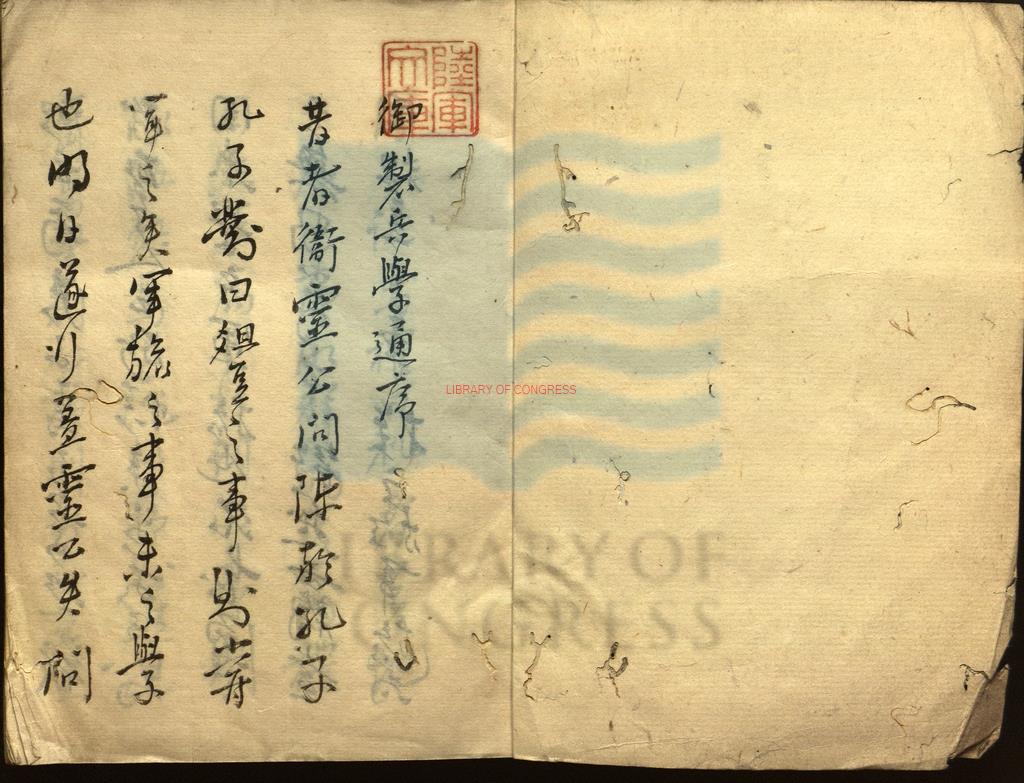 陸軍
文庫
御製兵學通序
昔者衛靈公問陳於孔子
孔子對曰俎豆之事則嘗
聞之矣軍旅之事未之學
也明日遂行蓋靈公失問
LIBRARY OF CONGRESS
LIBRARY OF
CONGRESS